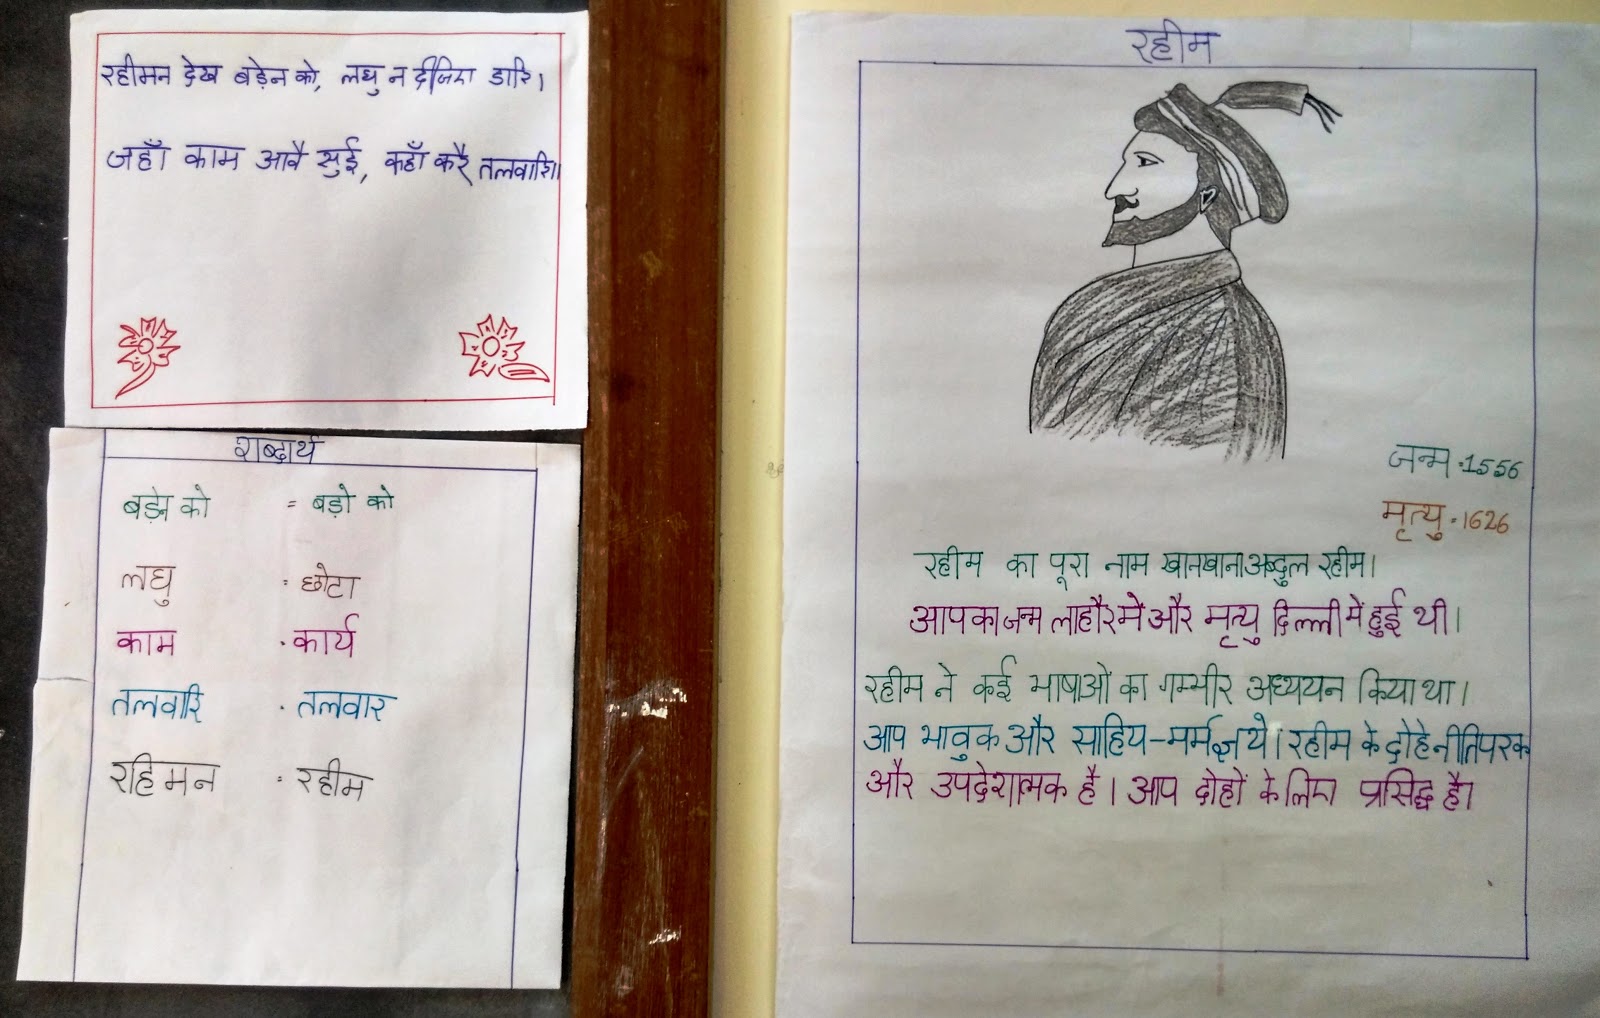 रहीमन देख बड़ेन को, लघु न दीजिए डारि।
जहाँ काम आवै सुई, कहाँ करै तलवारि।।
शब्दार्थ
बड़ेन को = बड़ो को
लघु = छोटा
काम - कार्य
तलवारि - तलवार
रहिमन = रहीम
रहीम
जन्म -1556
मृत्यु -1626
रहीम का पूरा नाम खानखाना अब्दुल रहीम।
आपका जन्म लाहौर मे और मृत्यु दिल्ली मे हुई थी।
रहीम ने कई भाषाओं का गम्भीर अध्ययन किया था।
आप भावुक और साहिय-मर्मज्ञ थे। रहीम के दोहे नीतिपरक
और उपदेशात्मक है। आप दोहों के लिए प्रसिद्ध है।